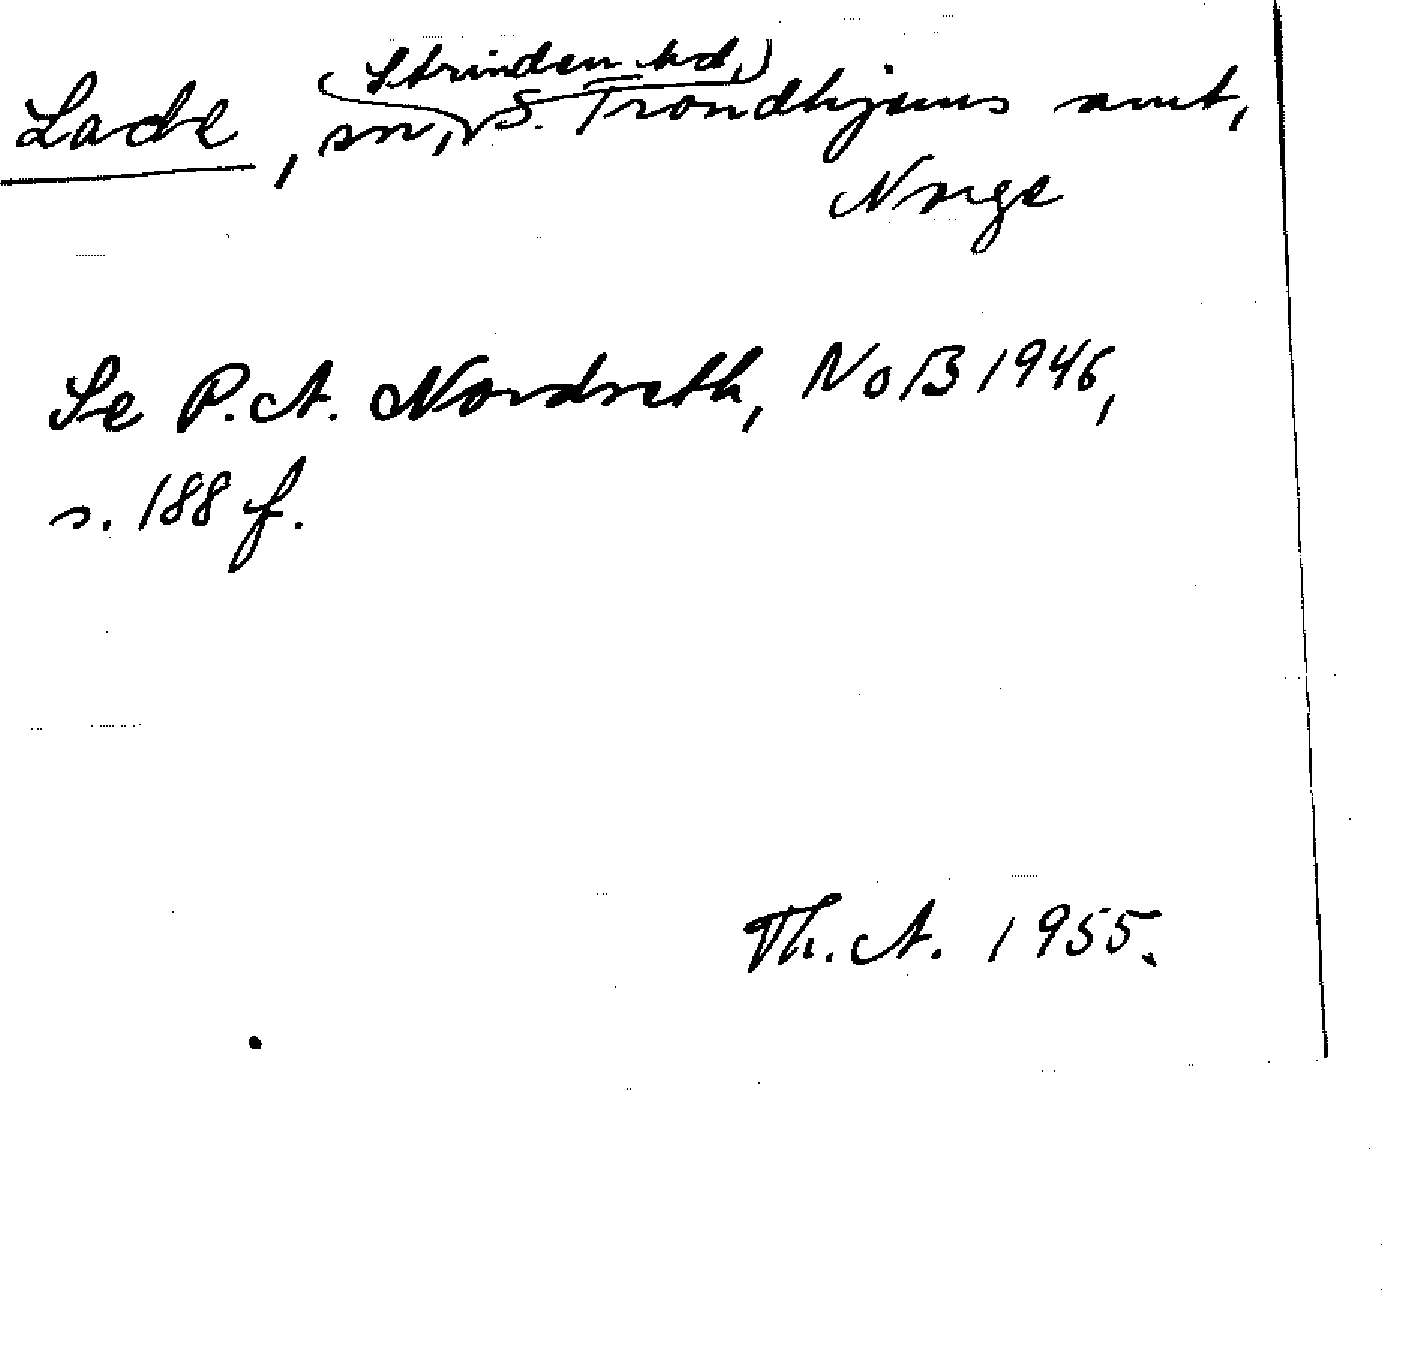 Lade, sn, (Strinden hd,) S. Trondhjems amt,
Norge
Se P. A. Nordseth, NoB 1946,
s. 188 f.
Th. A. 1955.